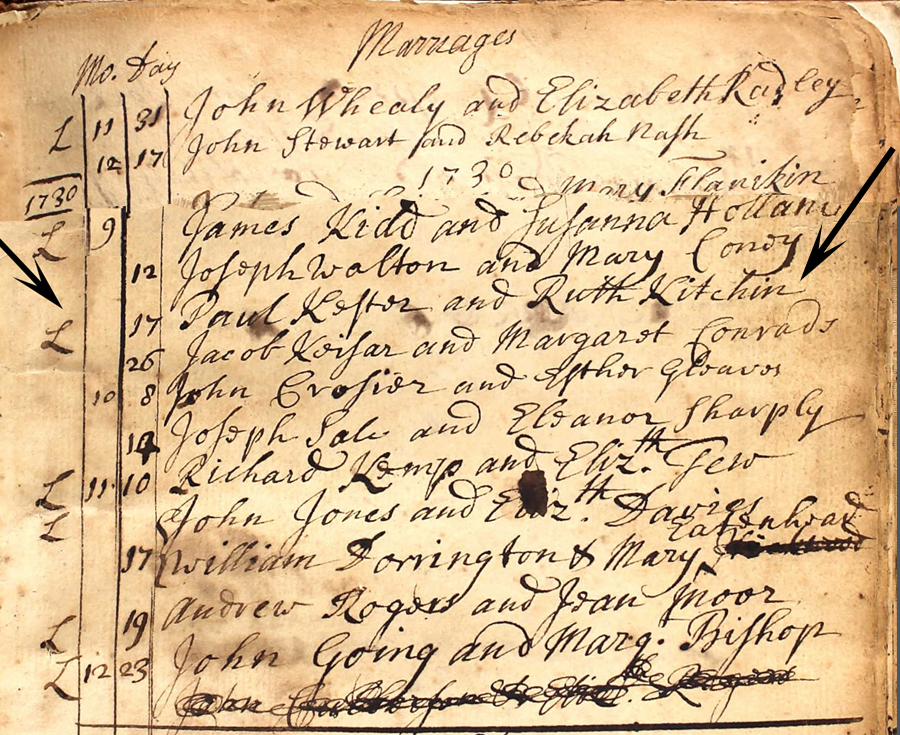 Marriages
Mo. Day
L 11 31 John Whealy and Elizabeth Radley
12 17 John Stewart and Rebekah Nash
1730
1730 Mary Flanikin
L 9 James Kidd and Susanna Holland
12 Joseph Walton and Mary Coney
17 Paul Kester and Ruth Kitchin
L 26 Jacob Keisar and Margaret Conrads
10 8 John Crosier and Esther Gleaves
14 Joseph Sale and Eleanor Sharply
L 11 10 Richard Kemp and Eliz.th Tew
L John Jones and Eliz.th Davies
Eatenhead
17 William Dorrington & Mary
19 Andrew Rogers and Jean Moor
L John Going and Marg. Bishop
L 12 23